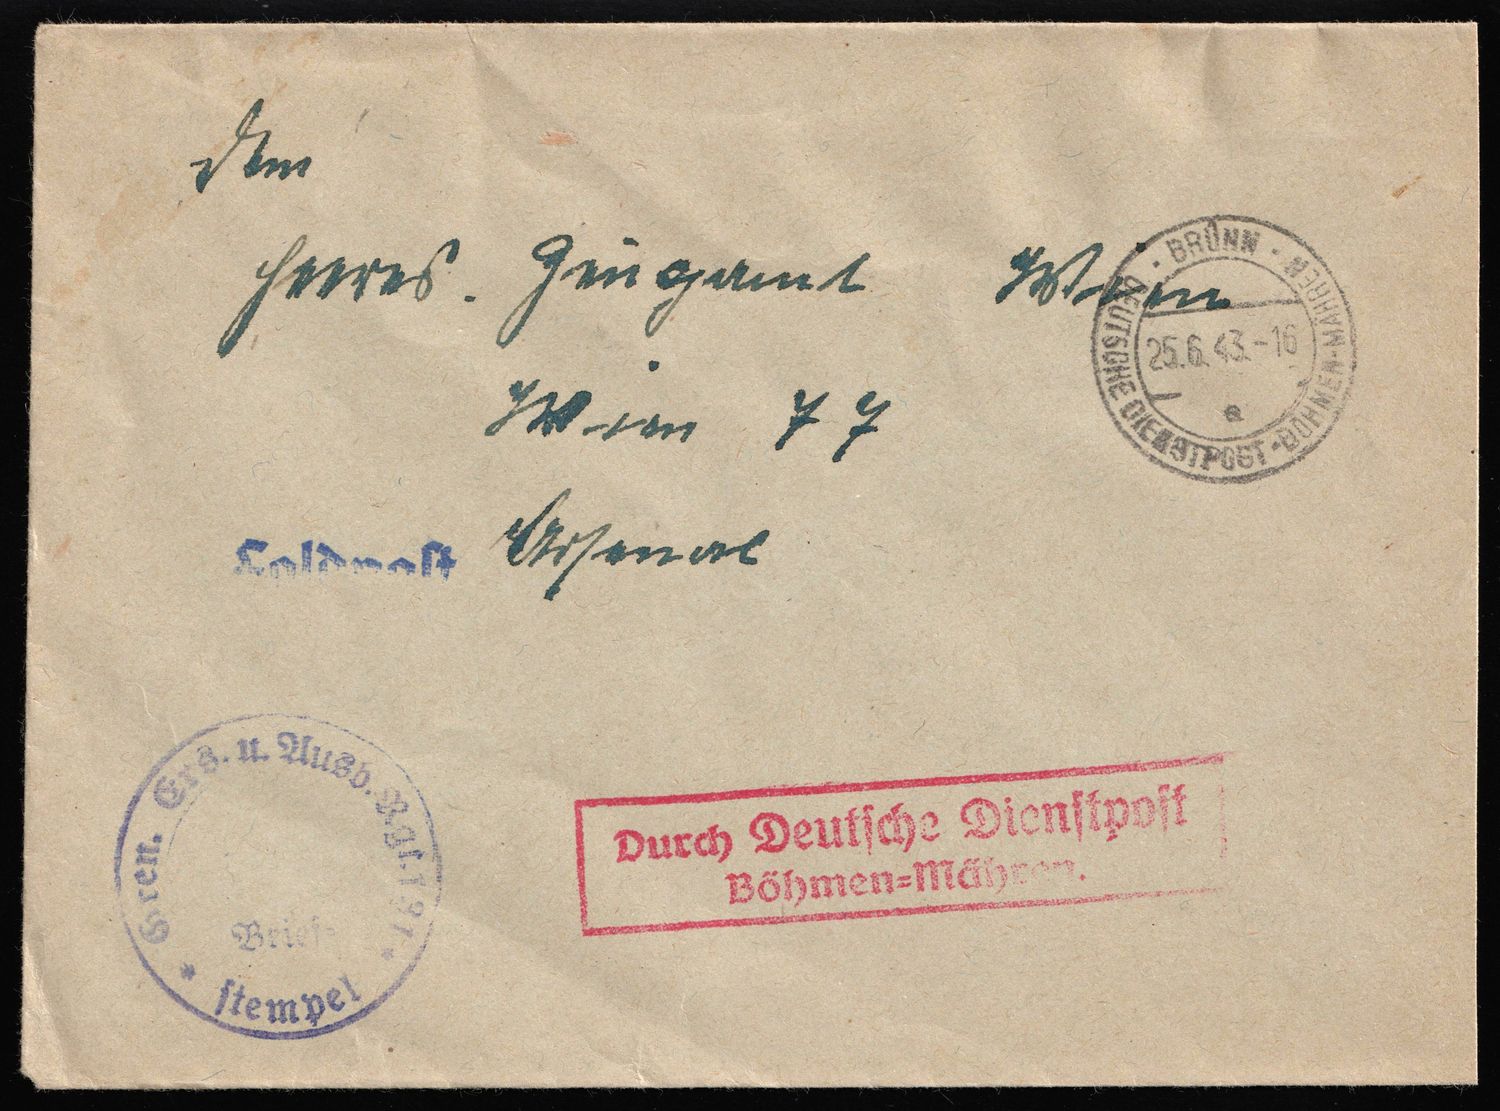 Dem
Heeres-Zeugamt Wien
Wien 77
Arsenal
Feldpost
· BRÜNN ·
DEUTSCHE DIENSTPOST · BÖHMEN-MÄHREN
25.6.43.-16
e
Gren. Ers. u. Ausb. Rgt. 191
Brief-
* stempel *
Durch Deutsche Dienstpost
Böhmen-Mähren.